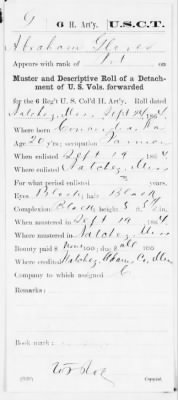 G 6 H. Art'y. U.S.C.T.
Abraham Gloves
Appears with rank of Pvt on
Muster and Descriptive Roll of a Detach-
ment of U. S. Vols. forwarded
for the 6 Reg't U. S. Col'd H. Art'y. Roll dated
Natchez, Miss Sept 24, 1864
Where born Concordia, La
Age 20 y'rs; occupation Farmer
When enlisted Sept 19, 1864
Where enlisted Natchez, Miss
For what period enlisted 3 years.
Eyes Black; hair Black
Complexion Black; height 5 ft. in.
When mustered in Sept 19, 1864
Where mustered in Natchez, Miss
Bounty paid $ none 100; due $ all 100
Where credited Natchez, Adams Co, Miss
Company to which assigned C
Remarks:
Book mark:
Copyist.